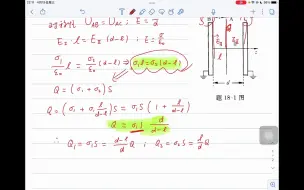 ∵ U_AB = U_AC ; E = σ/ε₀
E₂·l = E₁(d-l) ; E = σ/ε₀
σ₁/ε₀ l = σ₂/ε₀ (d-l) ⇒ σ₁l = σ₂(d-l)
Q = (σ₁ + σ₂)S
Q = (σ₁ + σ₁ l/(d-l))S = σ₁S (1 + l/(d-l))
Q = σ₁S d/(d-l)
∴ Q₁ = σ₁S = (d-l)/d Q ; Q₂ = σ₂S = l/d Q
Q
l
d
题 18-1 图